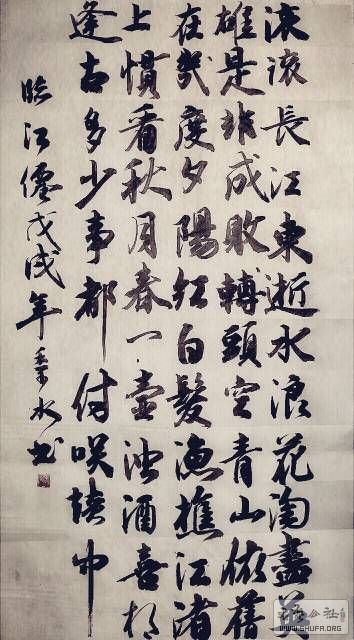 滚滚長江東逝水浪花淘盡英
雄是非成敗轉頭空青山依舊
在幾度夕陽紅白髮漁樵江渚
上慣看秋月春一壺濁酒喜相
逢古多少事都付咲談中
臨江僊戊戌年水书
公社
WWW.SHUFA.ORG